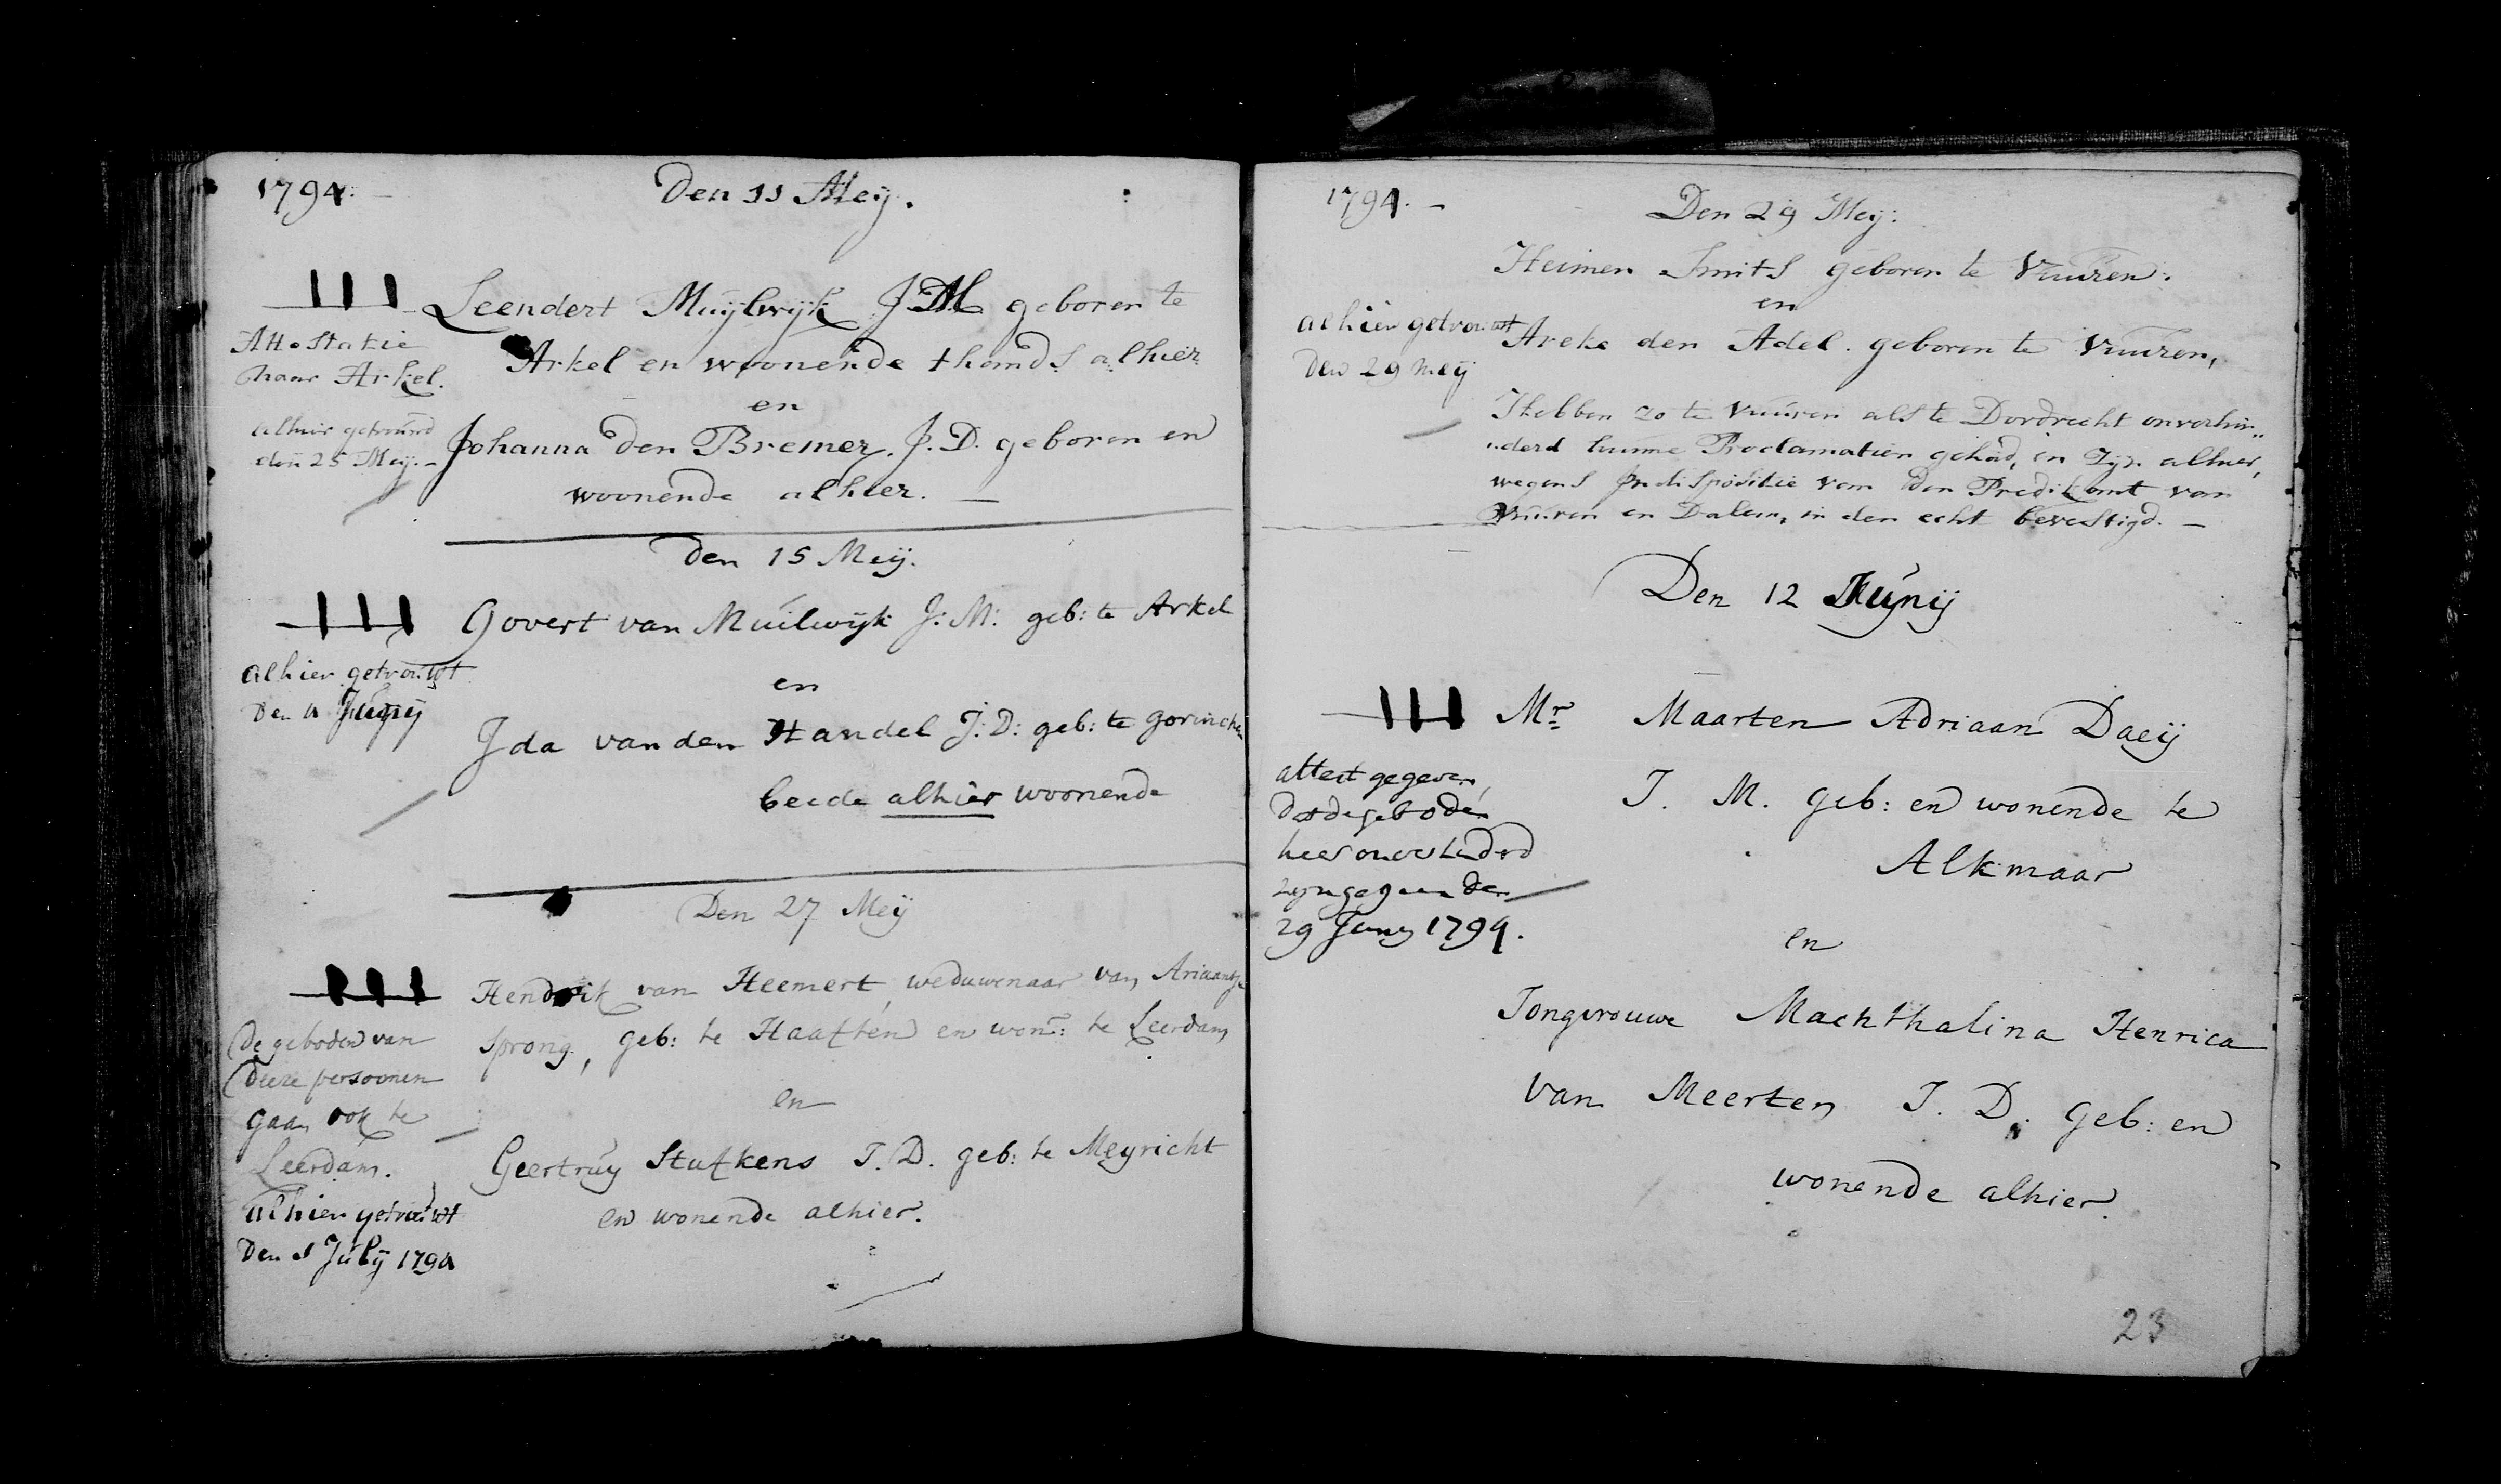 1794.
Den 11 Meij.
Leendert Muijlwijk J.M. geboren te
Arkel en woonende thands alhier
en
Johanna den Bremer. J.D. geboren en
woonende alhier.
Attestatie
naar Arkel.
alhier getrouwd
den 25 Meij.
den 15 Meij.
Govert van Muilwijk J: M: geb: te Arkel
en
Ida van den Handel J: D: geb: te Gorinchem
beede alhier woonende
alhier getrouwt
den Junij
Den 27 Meij
Hendrik van Heemert, weduwenaar van Ariaantje
Sprong, geb: te Haaften en won: te Leerdam
en
Geertruy Stufkens J. D. geb: te Meyricht
en wonende alhier.
De geboden van
deeze persoonen
gaan ook te
Leerdam.
alhier getrouwt
den 1 Julij 1794
1794.
Den 29 Meij:
Heimen Smits geboren te Vuuren.
en
Areke den Adel. geboren te Vuuren,
Hebben zo te Vuuren als te Dordrecht onverhin„
„derd hunne Proclamatien gehad, en zijn alhier,
wegens Indispositie van den Predikant van
Vuuren en Dalem, in den echt bevestigd.
alhier getrouwt
den 29 Meij
Den 12 Junij
Mr Maarten Adriaan Daeij
J. M. geb: en wonende te
Alkmaar
en
Jongvrouwe Machthalina Henrica
van Meerten J. D. geb: en
wonende alhier.
attest gegeven,
dat de geboden
hier onverhinderd
zyn gegaan den
29 Juny 1794.
23